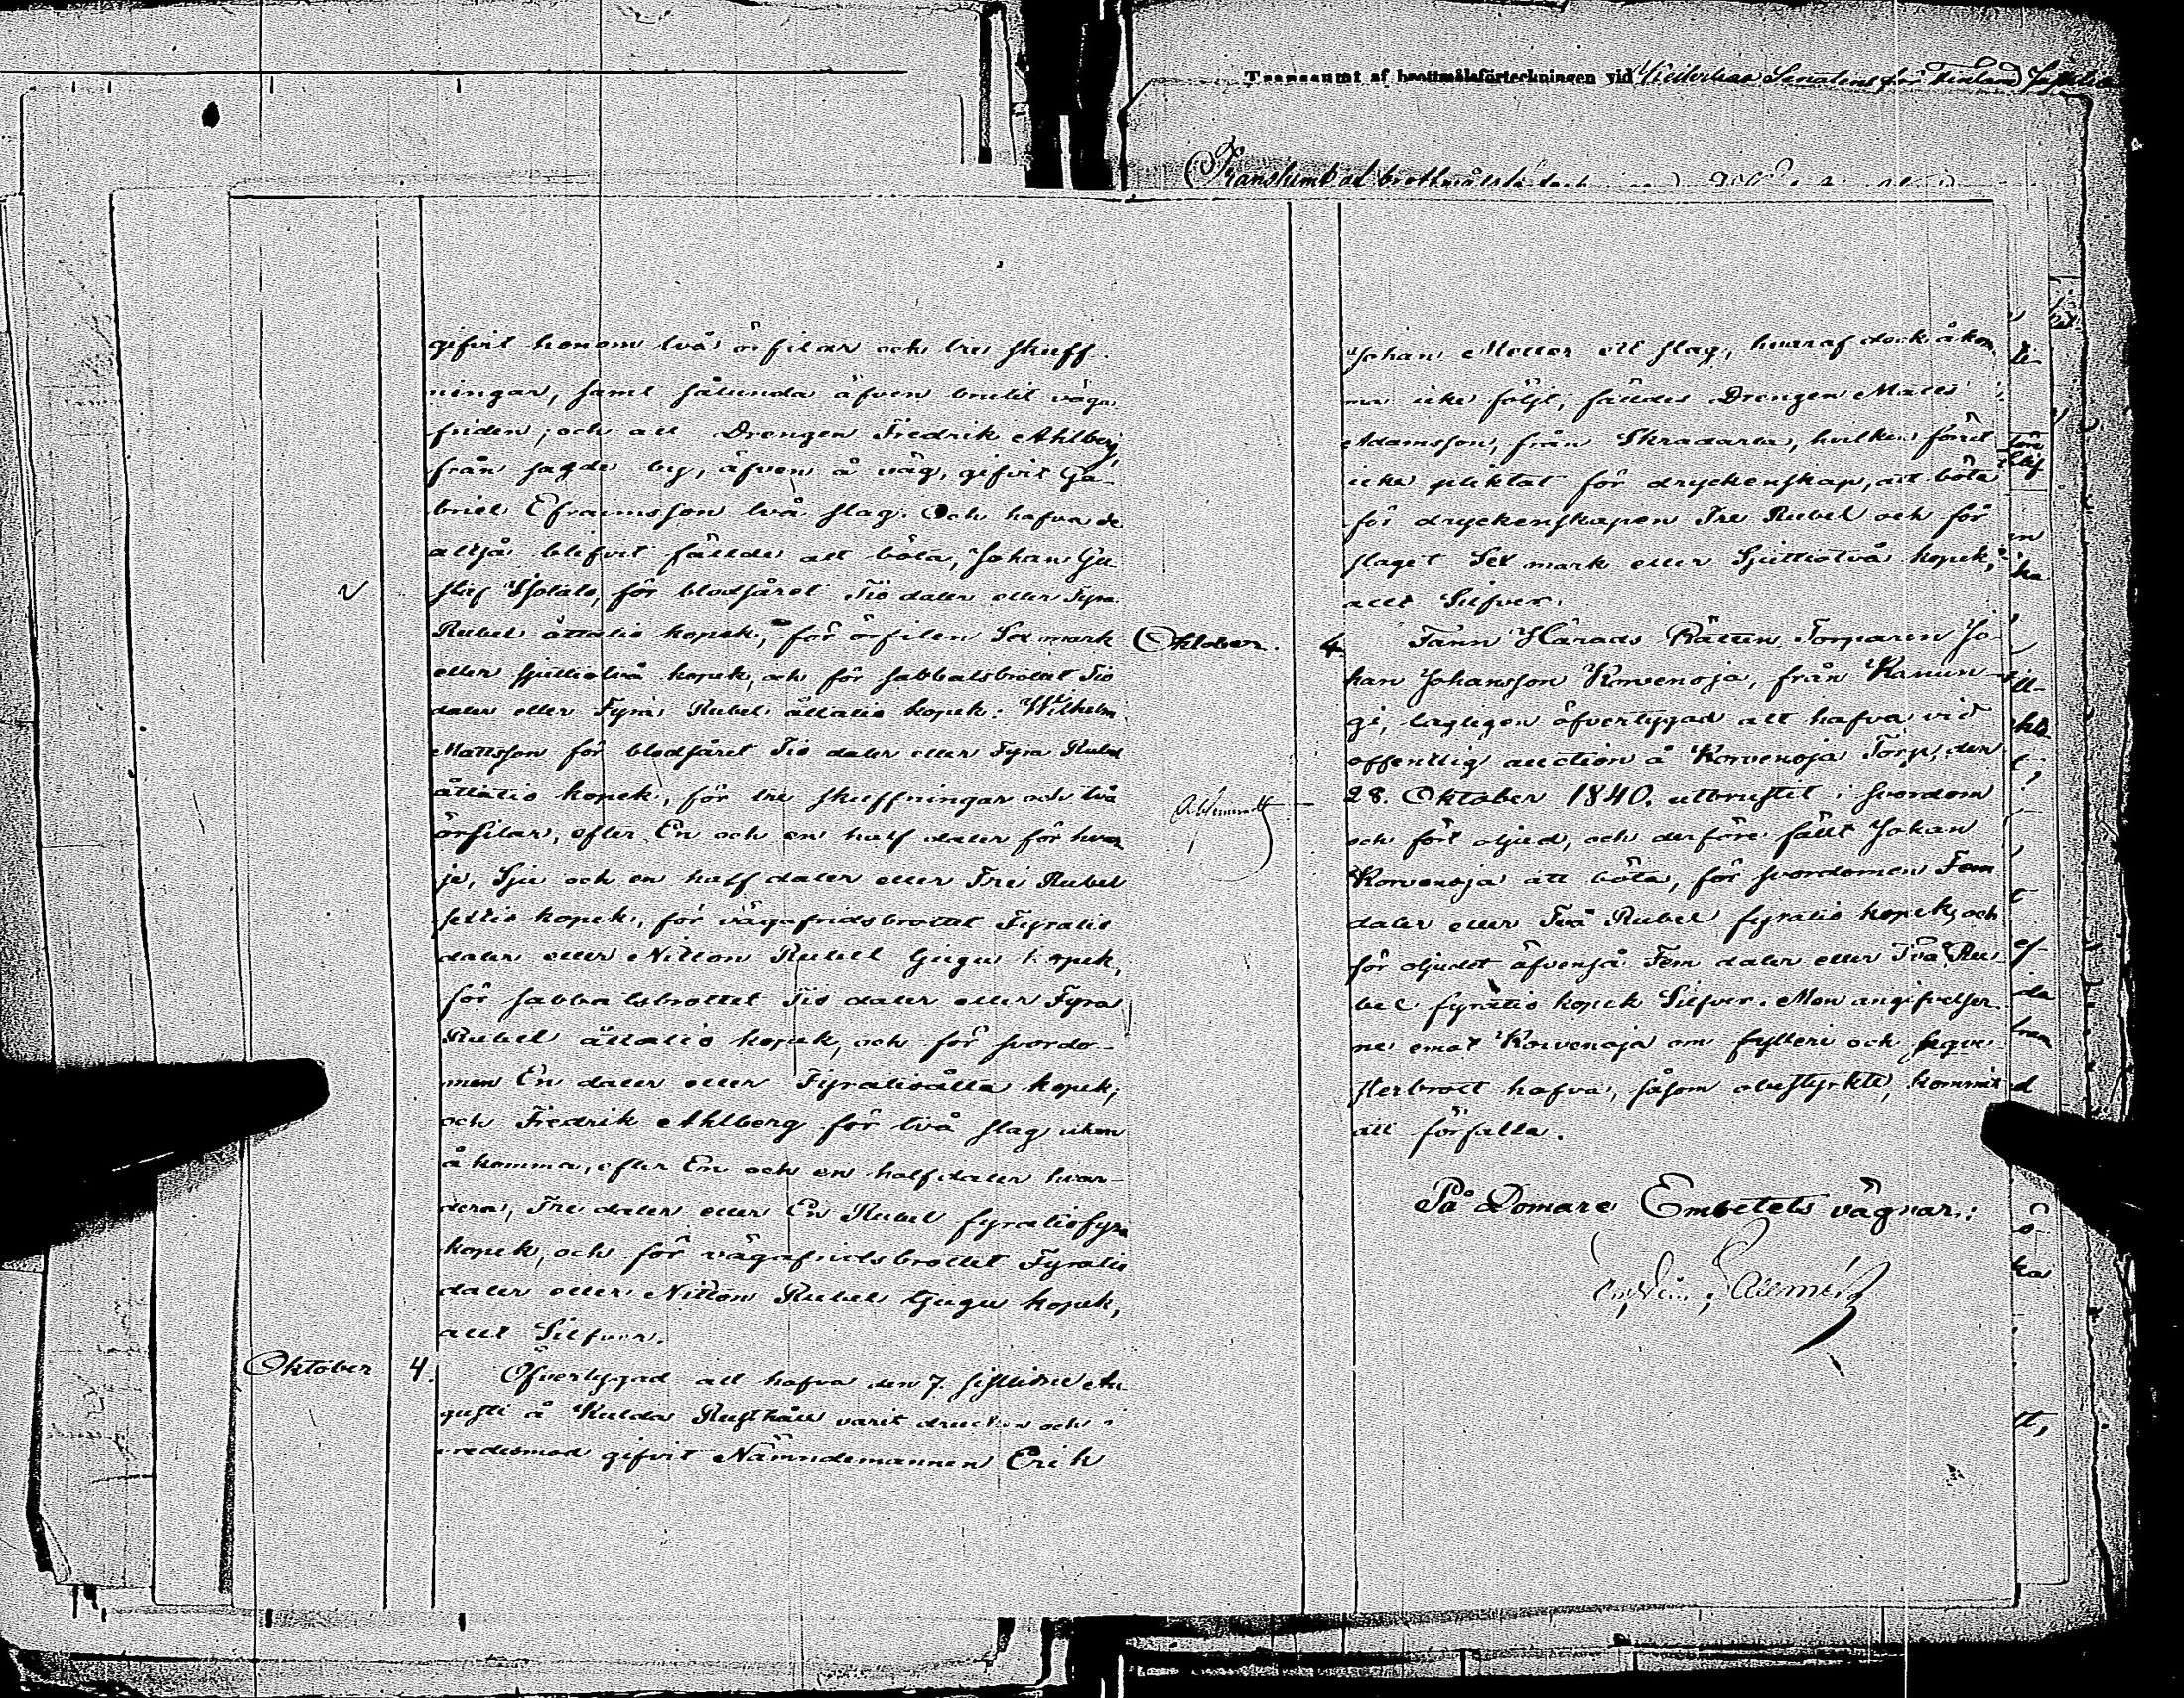 Transsumt af brottmålsförteckningen vid Kejserliga Senatens för Finland
Transsumt af
gifvit honom två örfilar och tre skuff-
ningar, samt sålunda äfven brutit väga
friden; och att Drengen Fredrik Ahlberg,
från sagde by, äfven å väg, gifvit Ga-
briel Efraimsson två slag. Och hafva de
altså blifvit fällde att böta, Johan Gu-
staf för blodsåret Tio daler eller Fyra
Rubel åttatio kopek, för örfilen Sex mark
eller sjuttiotvå kopek, och för sabbatsbrottet Tio
daler eller Fyra Rubel åttatio kopek: Wilhelm
Mattsson för blodsåret Tio daler eller Fyra Rubel
åttatio kopek, för tre skuffningar och två
örfilar, efter En och en half daler för hvar-
je, Sju och en half daler eller Tre Rubel
sextio kopek, för vägafridsbrottet Fyratio
daler eller Nitton Rubel tjugu kopek,
för sabbatsbrottet Tio daler eller Fyra
Rubel åttatio kopek, och för svordo-
men En daler eller Fyratioåtta kopek;
och Fredrik Ahlberg för två slag utan
åkomma, efter En och en half daler hvar-
dera, Tre daler eller En Rubel fyratiofyra
kopek, och för vägafridsbrottet Fyratio
daler eller Nitton Rubel tjugu kopek,
allt Silfver.
Oktober 4. Öfvertygad att hafva den 7. sistlidne Au-
gusti å Kulda Rusthåll varit drucken och i
vredesmod gifvit Nämndemannen Erik
Johan Meller ett slag, hvaraf dock åkom-
ma icke följt, fälldes Drengen Matts
Adamsson, från Skradarla, hvilken förut
icke pliktat för dryckenskap, att böta
för dryckenskapen Tre Rubel och för
slaget Sex mark eller Sjuttiotvå kopek,
allt Silfver.
Oktober. 4. Fann Härads Rätten Torparen Jo-
han Johansson Korvenoja, från Kanun-
gi, lagligen öfvertygad att hafva vid
offentlig auction å Korvenoja Torp, den
28. Oktober 1840, utbrustit i svordom
och fört oljud, och derföre fällt Johan
Korvenoja att böta, för svordomen Fem
daler eller Två Rubel fyratio kopek, och
för oljudet äfvenså Fem daler eller Två Ru-
bel fyratio kopek Silfver. Men angifvelser-
ne emot Korvenoja om fylleri och seqve-
sterbrott hafva, såsom obestyrkte, kommit
att förfalla.
På Domare Embetets vägnar: